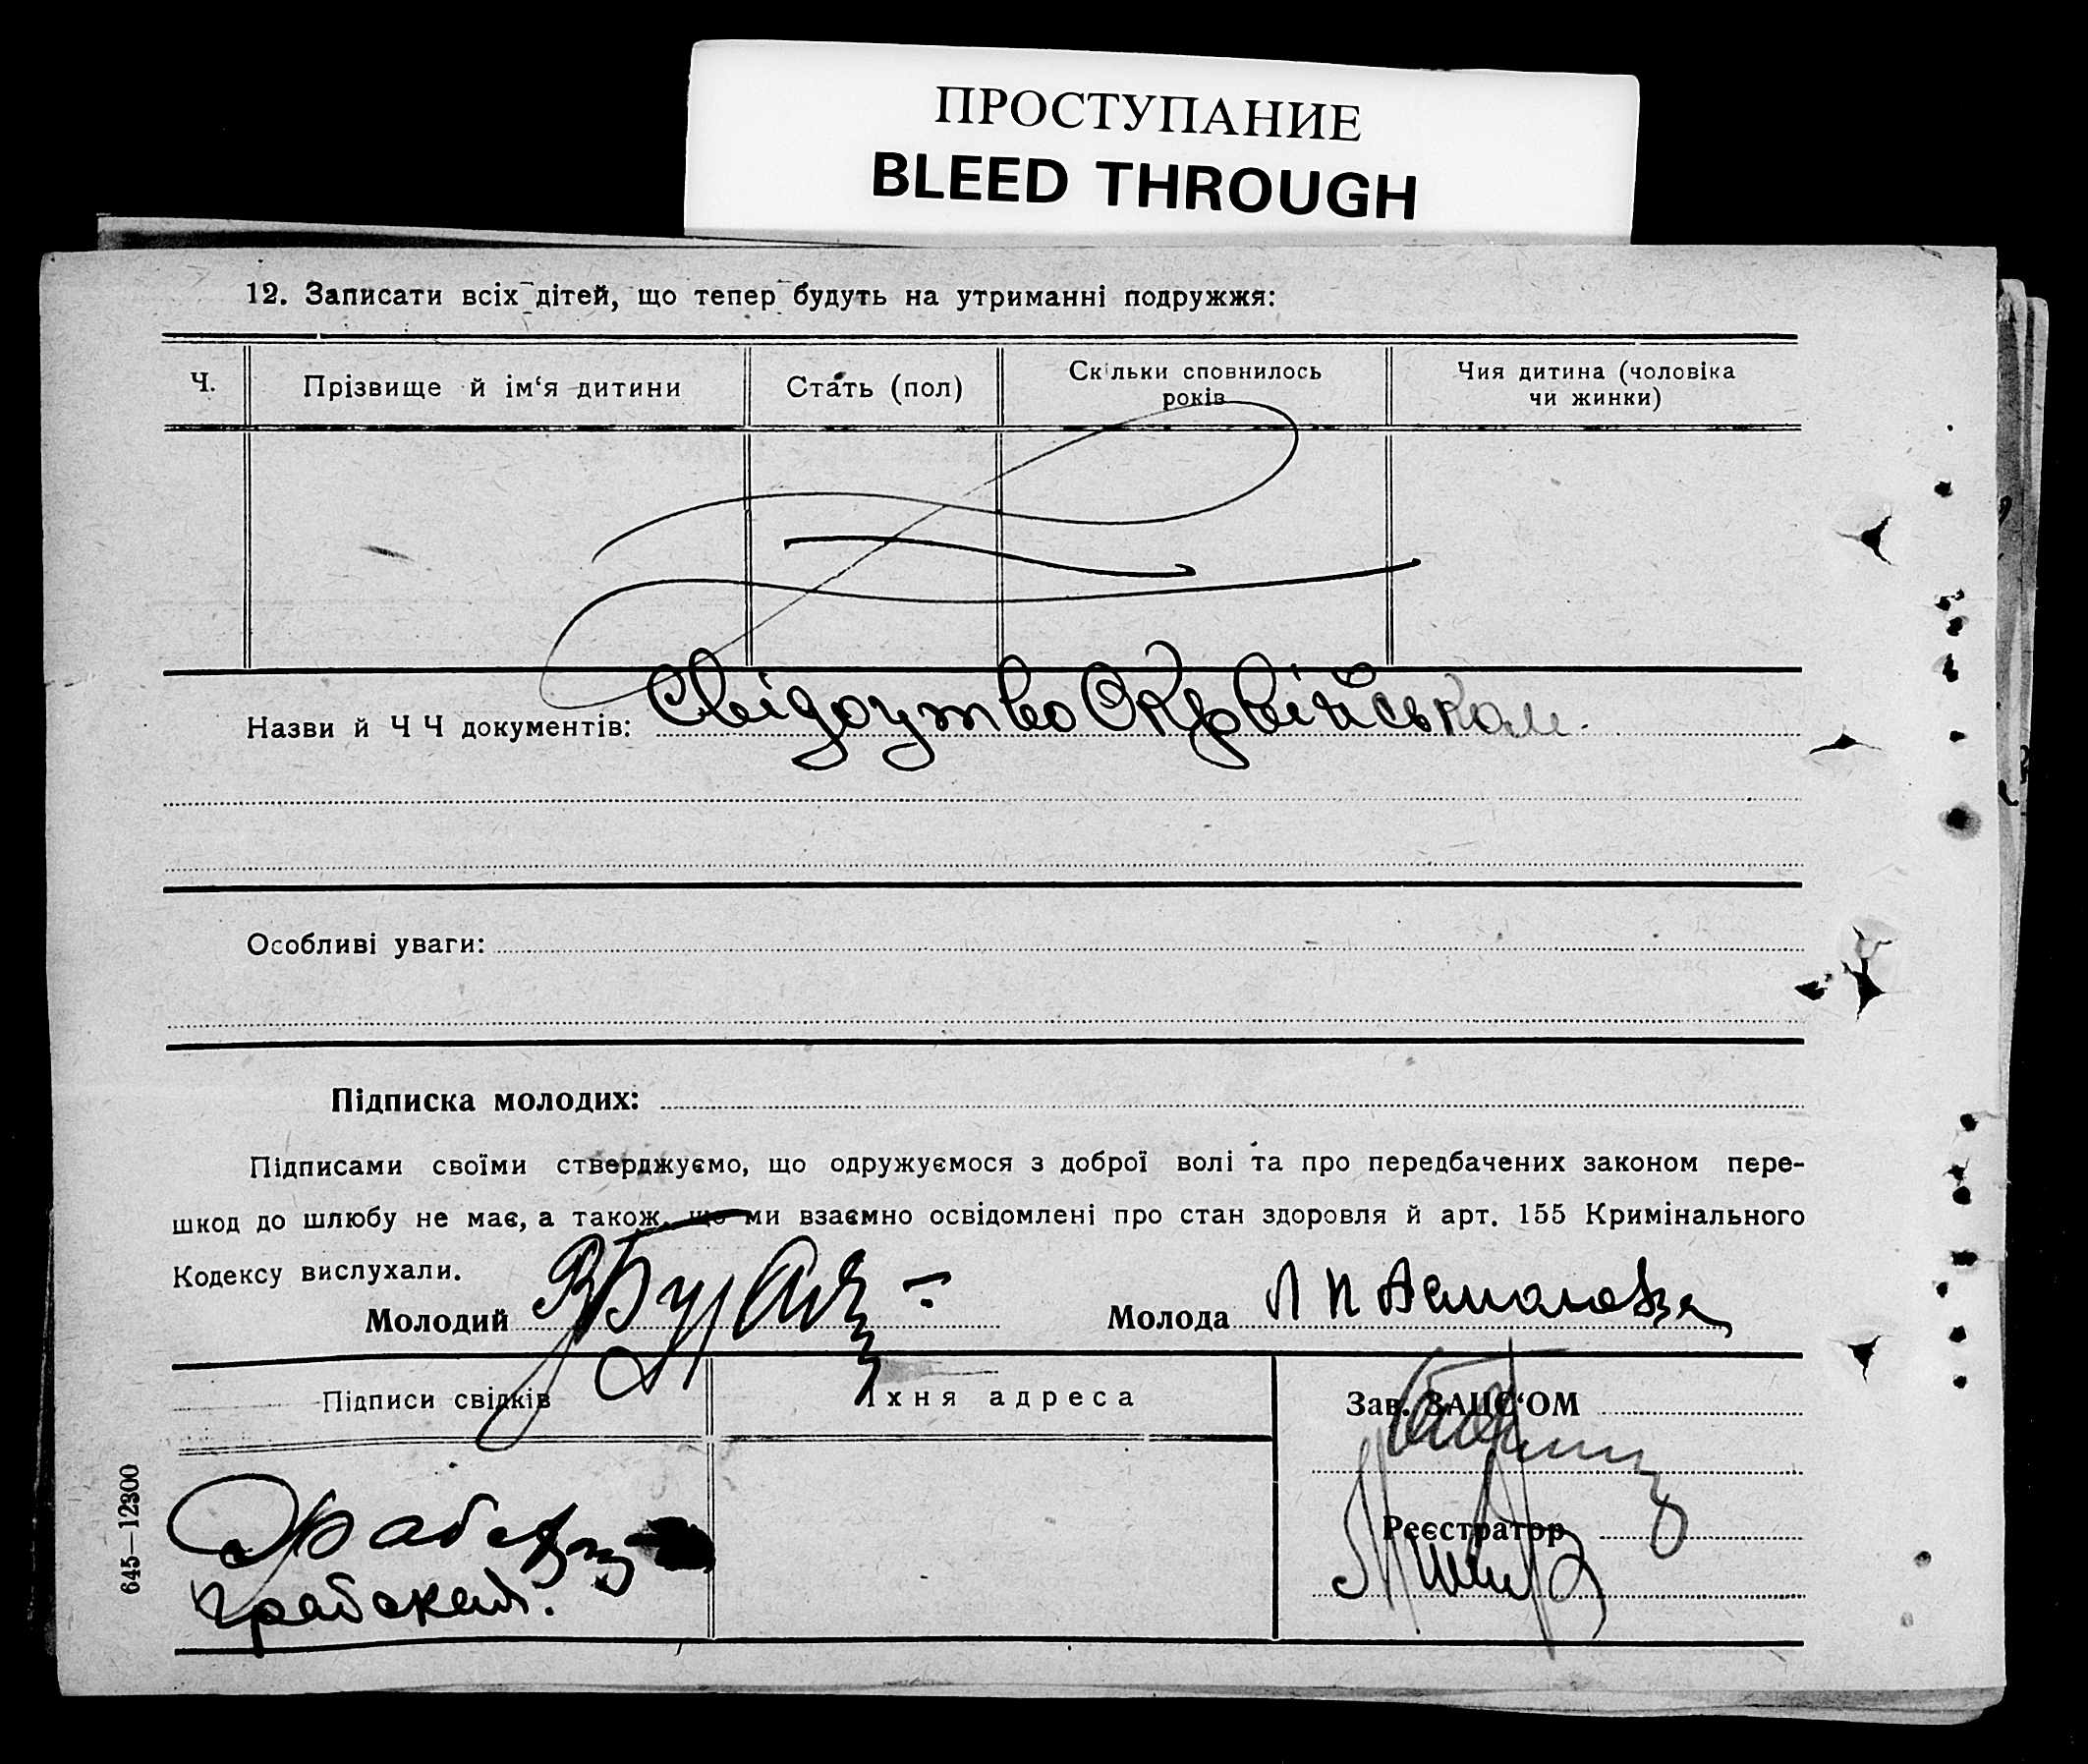 ПРОСТУПАНИЕ
BLEED THROUGH
12. Записати всіх дітей, що тепер будуть на утриманні подружжя:
Ч.
Прізвище й ім‘я дитини
Стать (пол)
Скільки сповнилось
років
Чия дитина (чоловіка
чи жинки)
Назви й Ч Ч документів: Свідоцтво Окрвійськом.
Особливі уваги:
Підписка молодих:
Підписами своїми стверджуємо, що одружуємося з доброї волі та про передбачених законом пере-
шкод до шлюбу не має, а також, що ми взаємно освідомлені про стан здоровля й арт. 155 Кримінального
Кодексу вислухали.
Молодий
Молода
Підписи свідків
Їхня адреса
Зав. ЗАЦС‘ОМ
Реєстратор
645—12300